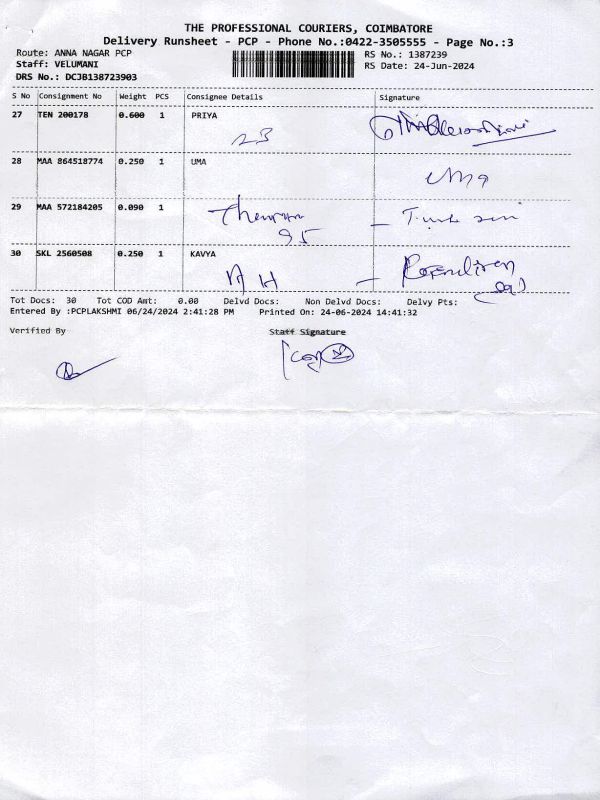 THE PROFESSIONAL COURIERS, COIMBATORE
Delivery Runsheet - PCP - Phone No.:0422-3505555 - Page No.:3
Route: ANNA NAGAR PCP RS No.: 1387239
Staff: VELUMANI RS Date: 24-Jun-2024
DRS No.: DCJB138723903
S No Consignment No Weight PCS Consignee Details Signature
27 TEN 200178 0.600 1 PRIYA
23
28 MAA 864518774 0.250 1 UMA
Uma
29 MAA 572184205 0.090 1
95
30 SKL 2560508 0.250 1 KAVYA
Tot Docs: 30 Tot COD Amt: 0.00 Delvd Docs: Non Delvd Docs: Delvy Pts:
Entered By :PCPLAKSHMI 06/24/2024 2:41:28 PM Printed On: 24-06-2024 14:41:32
Verified By Staff Signature